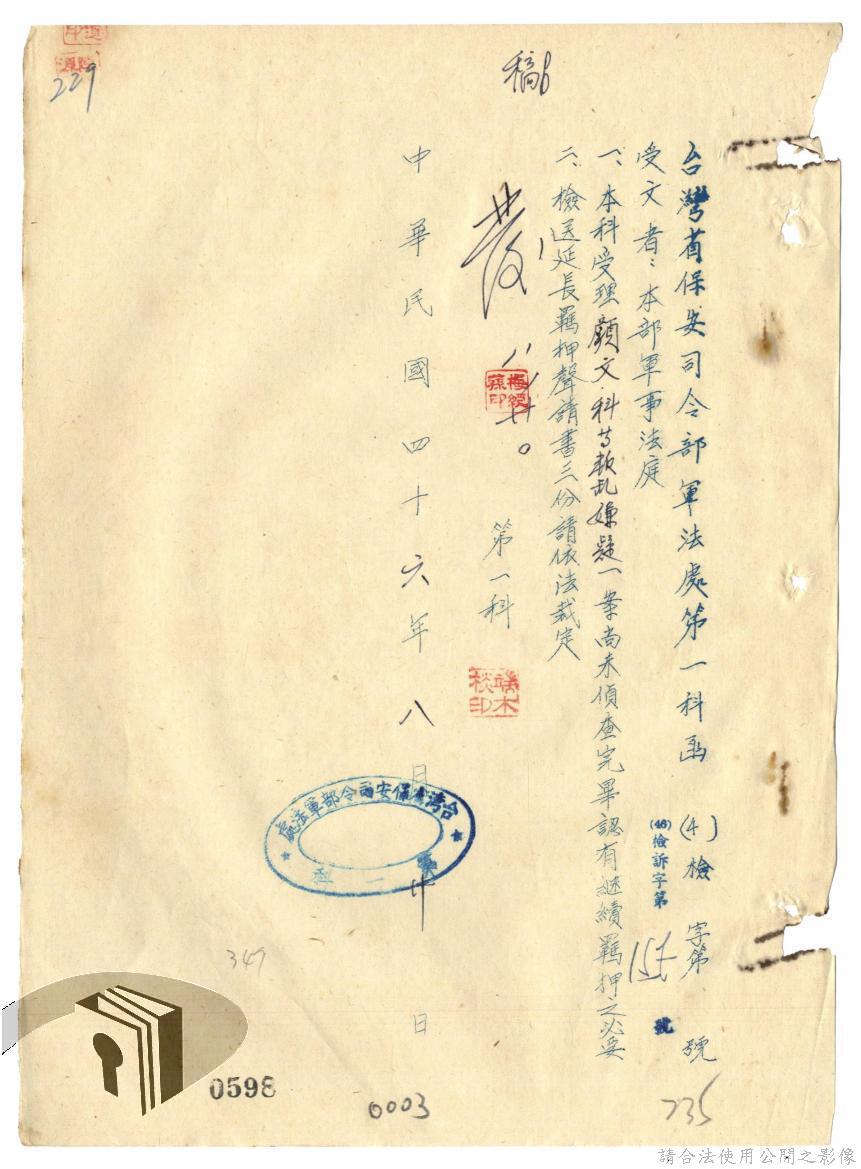 稿
台灣省保安司令部軍法處第一科函 (4)檢 字第 號
(46)檢訴字第 號
受文者：本部軍事法庭
一、本科受理顏文科等叛乱嫌疑一案尚未偵查完畢認有継續羈押之必要
二、檢送延長羈押聲請書三份請依法裁定
發 八、廿。
梅綬蓀印
第一科
端木棪印
中華民國四十六年八月廿日
台灣省保安司令部軍法處
229
349
0598
0003
735
請合法使用公開之影像